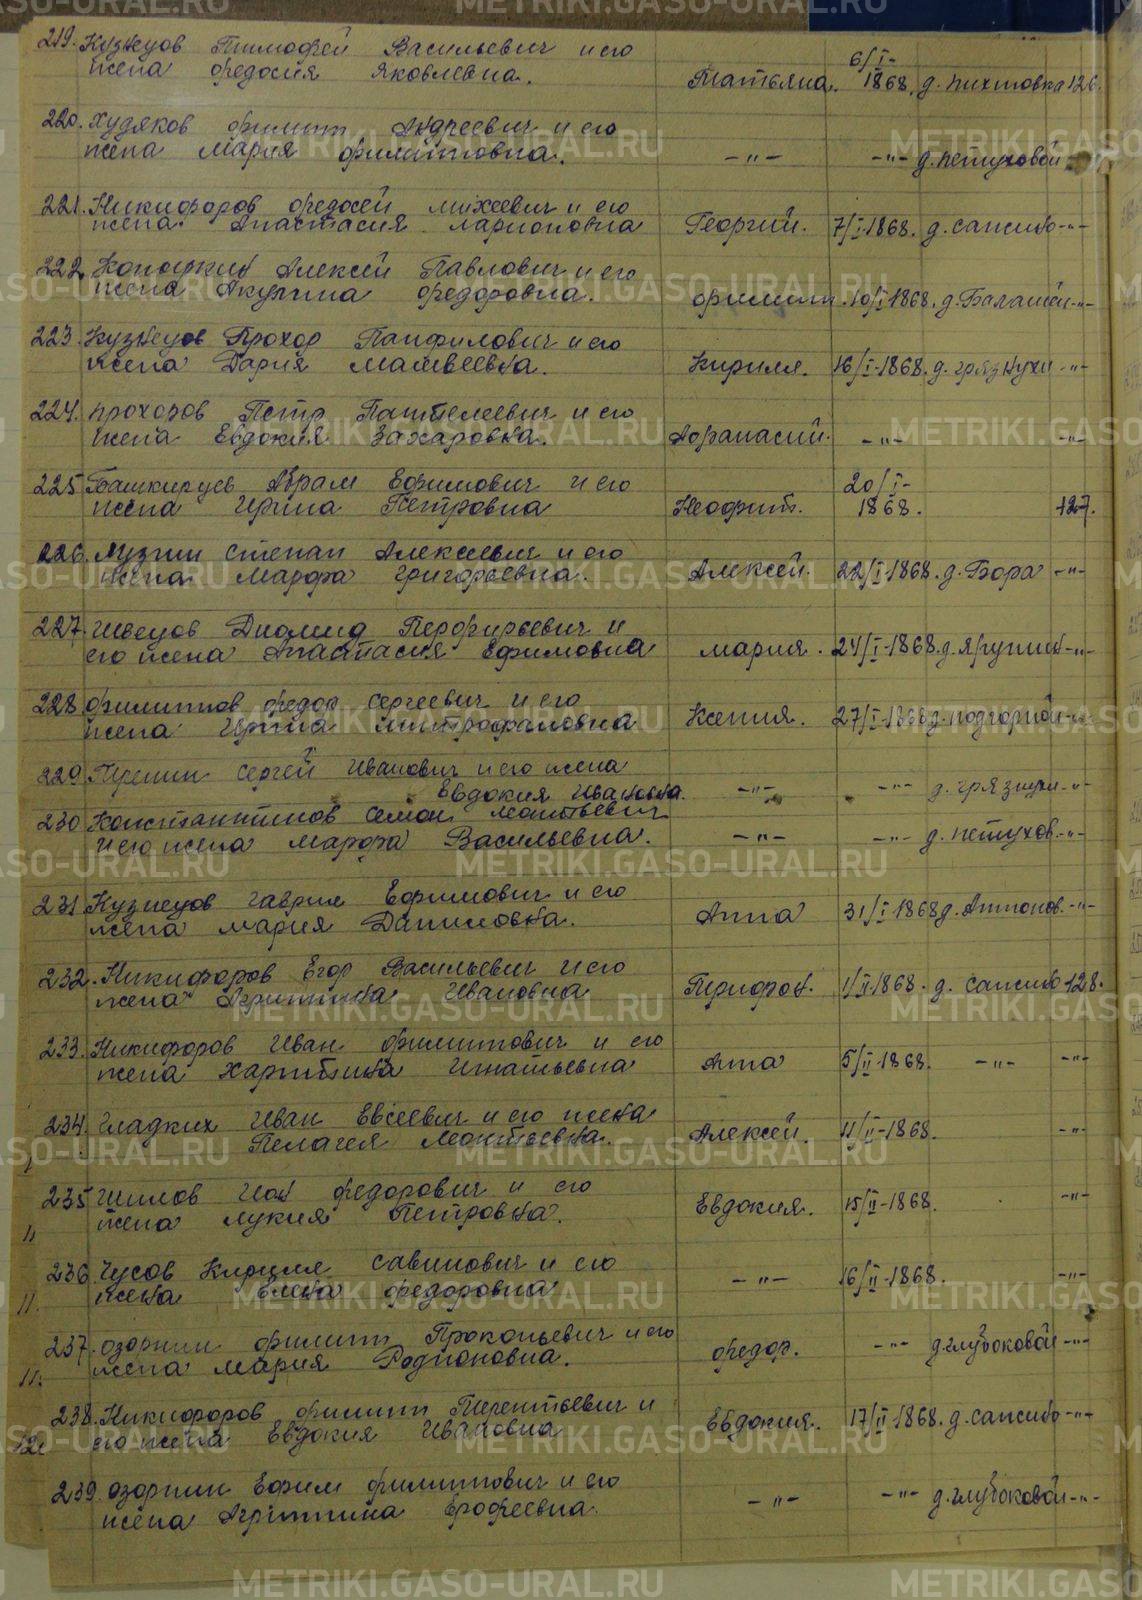 219. Кузнецов Тимофей Васильевич и его
жена Федосия Яковлевна. Татьяна. 6/I-1868. д. Пихтовка 126.
220. Худяков Филипп Андреевич и его
жена Мария Филипповна. -"- -"- д. Петуховой
221. Никифоров Федосей Михеевич и его
жена Анастасия Ларионовна Георгий. 7/I-1868. д. Сапсино -"-
222. Алексей Павлович и его
жена Акулина Федоровна. Филипп. 10/I-1868. д. Балашей -"-
223. Кузнецов Прохор Панфилович и его
жена Дария Матвеевна. Кирилл. 16/I-1868. д. Грязнухи -"-
224. Прохоров Петр Пантелеевич и его
жена Евдокия Захаровна. Афанасий. -"- -"-
225 Башкирцев Абрам Ефимович и его
жена Ирина Петровна Неофит. 20/I-1868. 127.
226. Лузин Степан Алексеевич и его
жена Марфа Григорьевна. Алексей. 22/I-1868. д. Бора -"-
227. Швецов Диомид Перфирьевич и
его жена Анастасия Ефимовна Мария. 24/I-1868. д. -"-
228 Филиппов Федор Сергеевич и его
жена Ирина Митрофановна Ксения. 27/I-1868 д. Подгорной -"-
229 Сергей Иванович и его жена
Евдокия Ивановна. -"- -"- д. Грязнухи -"-
230 Константинов Семен Леонтьевич
и его жена Марфа Васильевна. -"- -"- д. Петухов. -"-
231 Кузнецов Гаврил Ефимович и его
жена Мария Даниловна. Анна 31/I-1868 д. Антонов. -"-
232. Никифоров Егор Васильевич и его
жена Агриппина Ивановна Трифон. 1/II-1868. д. Сапсино 128.
233. Никифоров Иван Филиппович и его
жена Харитина Игнатьевна Анна 5/II-1868. -"- -"-
234. Гладких Иван Евсеевич и его жена
Пелагея Леонтьевна. Алексей. 11/II-1868. -"-
235 Шилов Иов Федорович и его
жена Лукия Петровна. Евдокия. 15/II-1868. -"-
236 Чусов Кирилл Савинович и его
жена Елена Федоровна -"- 16/II-1868. -"-
237. Озорнин Филипп Прокопьевич и его
жена Мария Родионовна. Федор. -"- д. Глубоковой -"-
238. Никифоров Филипп Терентьевич и
его жена Евдокия Ивановна Евдокия. 17/II-1868. д. Сапсино -"-
239. Озорнин Ефим Филиппович и его
жена Агриппина Ерофеевна. -"- -"- д. Глубоковой -"-
METRIKI.GASO-URAL.RU